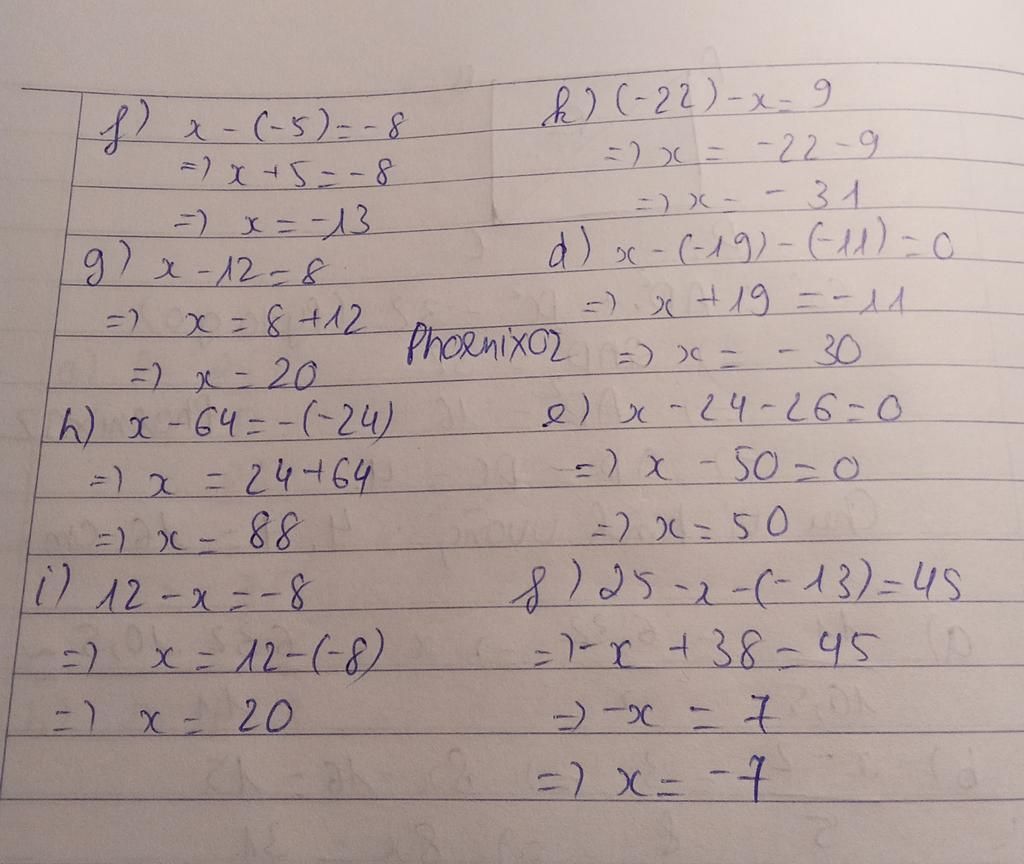 f) x - (-5) = -8
=) x + 5 = -8
=) x = -13
g) x - 12 = 8
=) x = 8 + 12
=) x = 20
h) x - 64 = -(-24)
=) x = 24 + 64
=) x = 88
i) 12 - x = -8
=) x = 12 - (-8)
=) x = 20
Phoenix02
k) (-22) - x = 9
=) x = -22 - 9
=) x = - 31
d) x - (-19) - (-11) = 0
=) x + 19 = -11
=) x = - 30
e) x - 24 - 26 = 0
=) x - 50 = 0
=) x = 50
f) 25 - x - (-13) = 45
=) -x + 38 = 45
=) -x = 7
=) x = -7